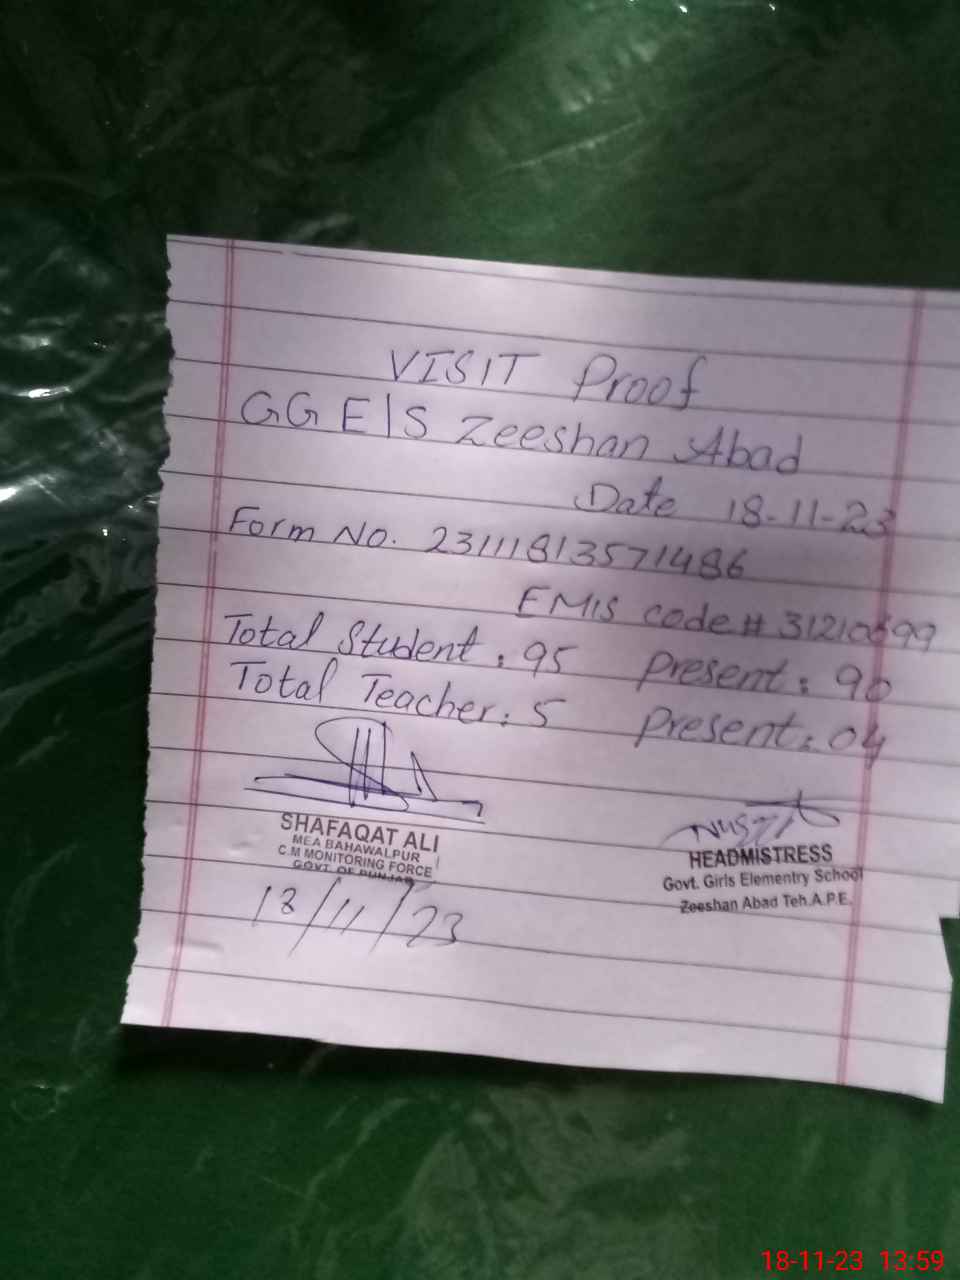 VISIT Proof
GG E/S Zeeshan Abad
Date 18-11-23
Form No. 23111813571486
EMIS code # 31210699
Total Student : 95 Present : 90
Total Teacher : 5 Present : 04
SHAFAQAT ALI
MEA BAHAWALPUR
C.M MONITORING FORCE
GOVT. OF PUNJAB
18/11/23
HEADMISTRESS
Govt. Girls Elementry School
Zeeshan Abad Teh.A.P.E.
18-11-23 13:59